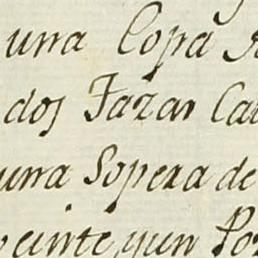 una Copa
dos Tazas Ca
una Sopera de
veinte, y un Po